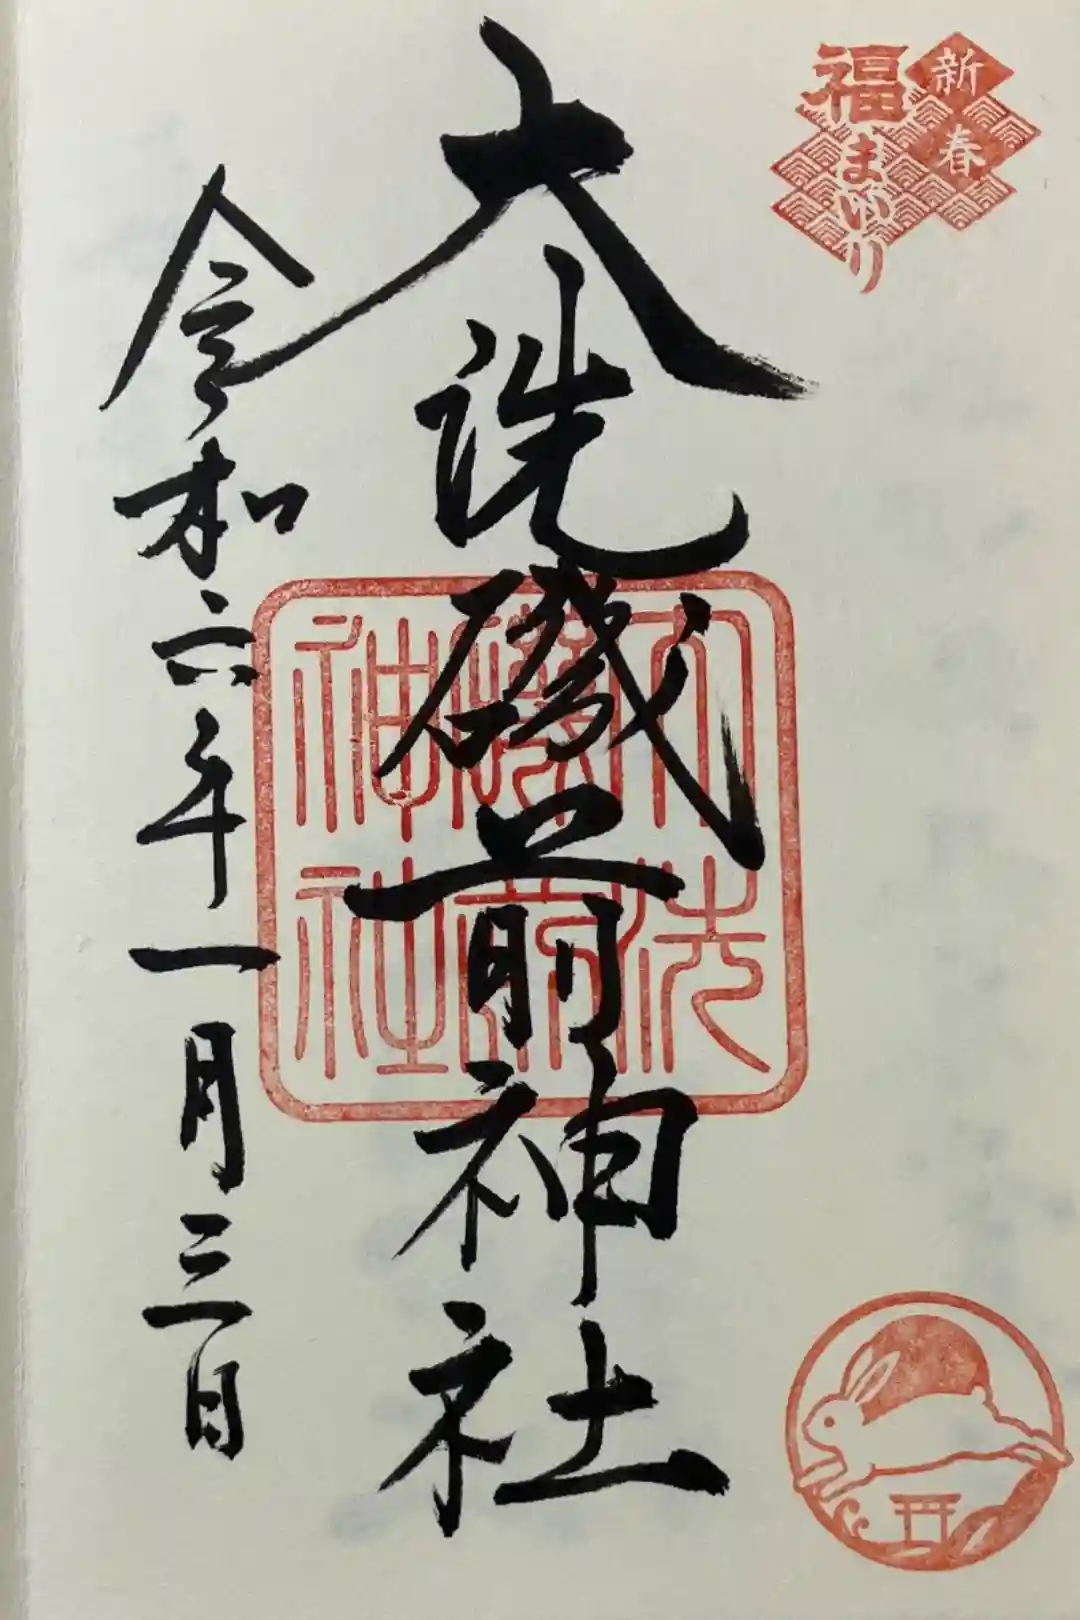 新春
福まゐり
大洗磯前神社
大洗
磯前
神社
令和六年一月三日